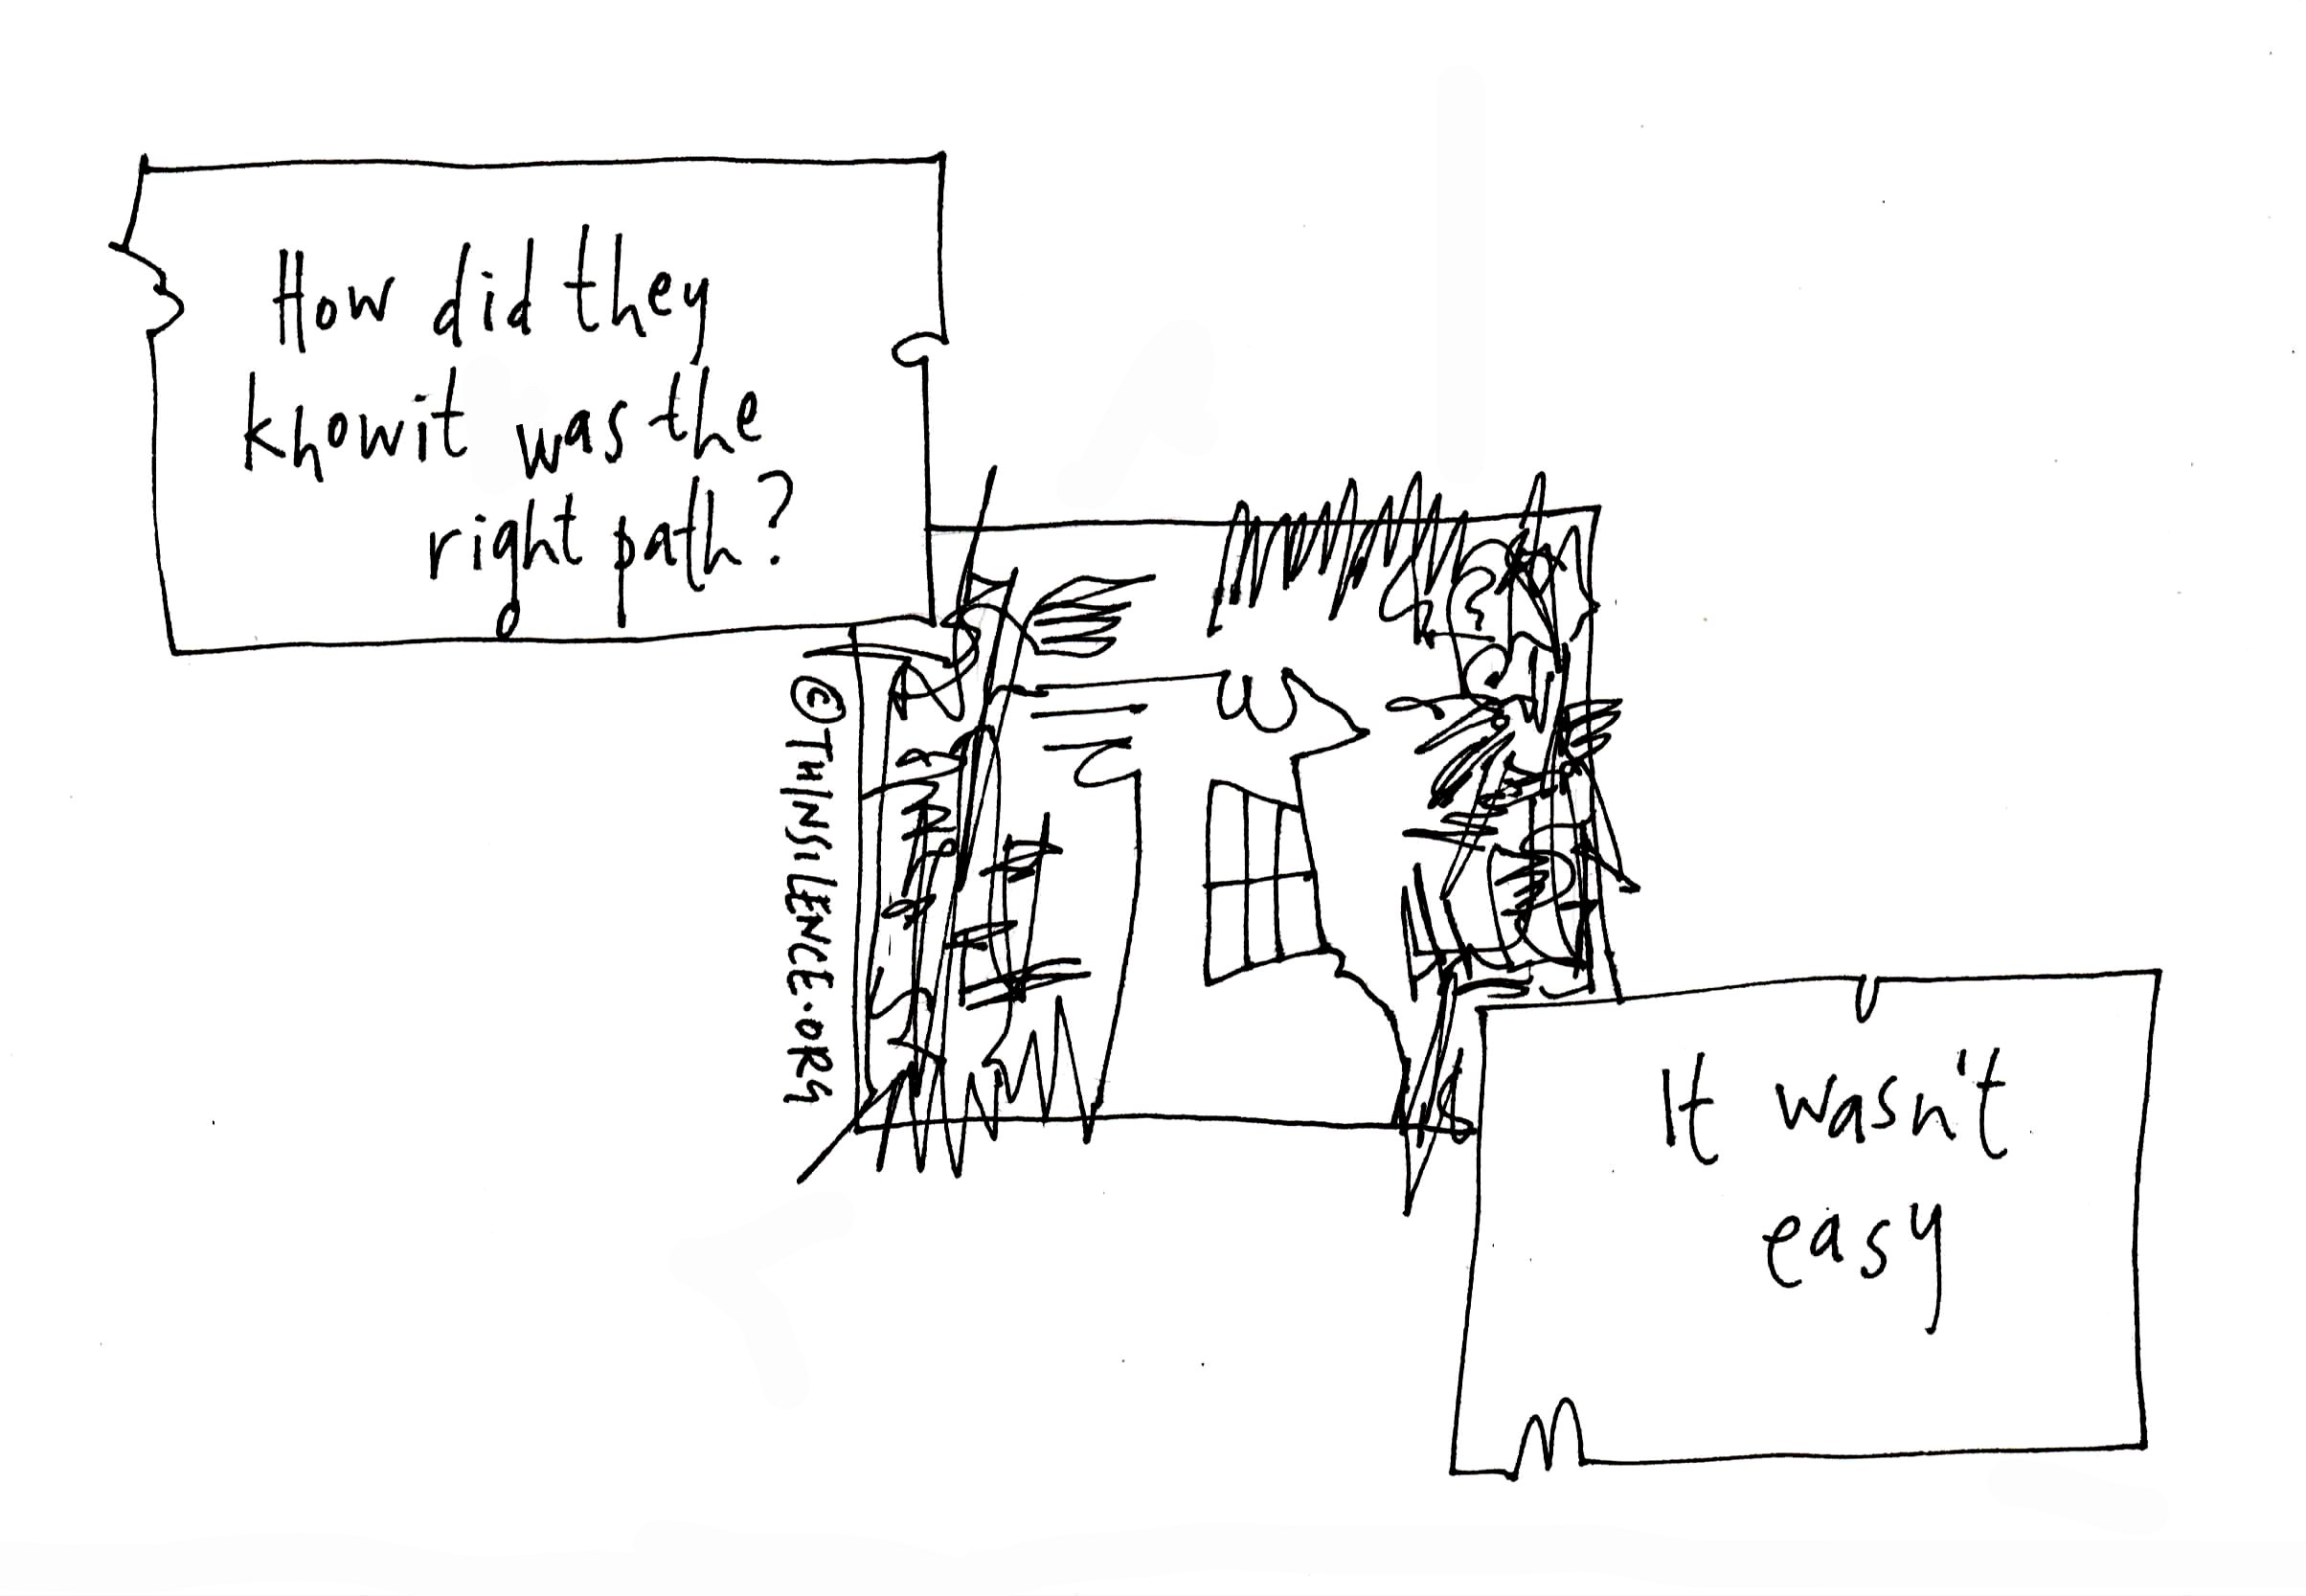 How did they
know it was the
right path?
© THINSILENCE.ORG
It wasn't
easy